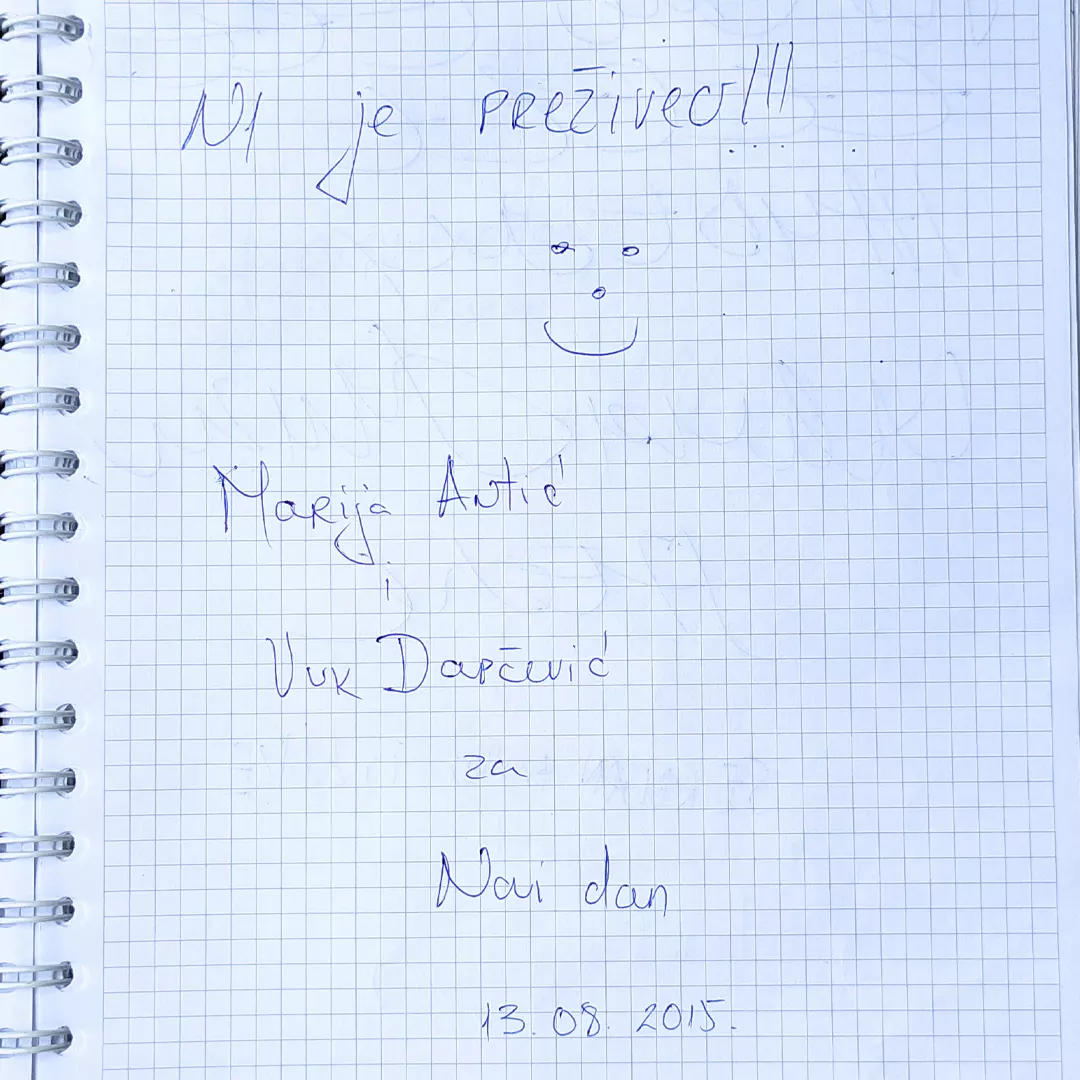 N1 je preživeo!!!
Marija Antić
i
Vuk Dapčević
za
Novi dan
13.08.2015.